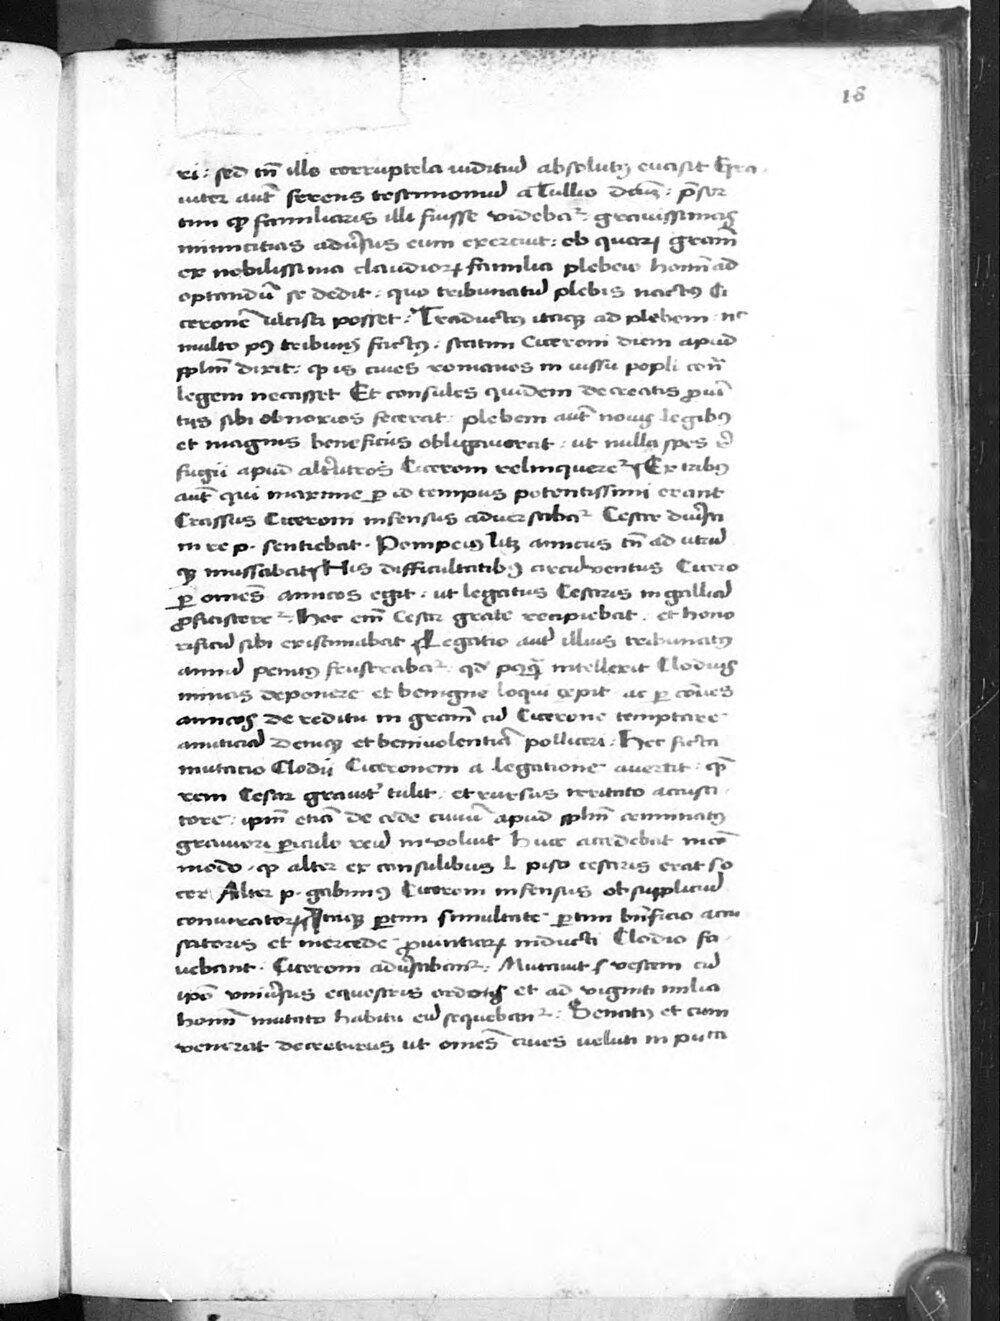 18
ri: sed tñ ille corruptela iuditiũ absolutꝰ euasit Gra
uiter aut̃ ferens testimoniuʒ a Tullio datũ: p̃ser
tim qꝫ familiaris illi fuisse videbat᷑: grauissimas
inimicitias adũsus eum exercuit: ob quaꝝ gram̃
ex nobilissima claudioꝝ familia plebeio homĩ ad
optandũ se dedit: quo tribunatũ plebis nactꝰ Ci
ceronẽ vlcisci posset: Traductꝰ itaqꝫ ad plebem nc̃
multo pꝰ tribunꝰ factꝰ: statim Ciceroni diem apud
pplm̃ dixit: qꝫ is ciues romanos in iussu popli con̄
legem necasset Et consules quidem decretis ꝓuĩ
tijs sibi obnoxios fecerat: plebem aut̃ nouis legibꝰ
et magnis beneficijs obligauerat: ut nulla spes
fugij apud alt̃utros Ciceroni relinqueret᷑ Ex tribꝰ
aut̃ qui maxime ꝑ id tempus potentissimi erant
Crassus Ciceroni infensus aduersabat᷑ Cesar diũsa
in re p. sentiebat. Pompeiꝰ litꝫ amicus tñ ad utrũ
qꝫ mussabat His difficultatibꝰ circũuentus Cicero
ꝑ omẽs amicos egit: ut legatus Cesaris in galliã
ꝓficisceret᷑: Hoc em̃ Cesar grate recipiebat. et hono
rificũ sibi existimabat Legatio aut̃ illius tribunatꝰ
annũ penitꝰ frustrabat᷑. qd̃ pꝰqꝫ̃ intellexit Clodius
minas deponere et benigne loqui cepit. ac ꝑ cõnes
amicos de reditu in gram̃ cũ Cicerone temptare
amiticiã deniqꝫ et beniuolentiã polliceri: Hec ficta
mutacio Clodij Ciceronem a legatione auertit. qm̃
rem Cesar grauit̃ tulit. et rursus irritato accusa
tore. ipm̃ etiã de cede ciuiũ apud pplm̃ criminatꝰ
grauiori ꝑiculo reũ inuoluit Huc accedebat incõ
modo. qꝫ alter ex consulibus L piso cesaris erat so
cer Alter p. gabiniꝰ Ciceroni infensus ob suppliciũ
coniuratoꝝ Itaqꝫ ꝑtim simultate ꝑtim bñficio accu
satoris et mercede ꝓuintiaꝝ inducti Clodio fa
uebant. Ciceroni adũsabant᷑: Mutauit vestem cũ
ipõ vniũsus equestris ordo et ad viginti milia
homĩ mutato habitu eũ sequebant᷑: Senatꝰ et cum
venerat decreturus ut omẽs ciues veluti in puca